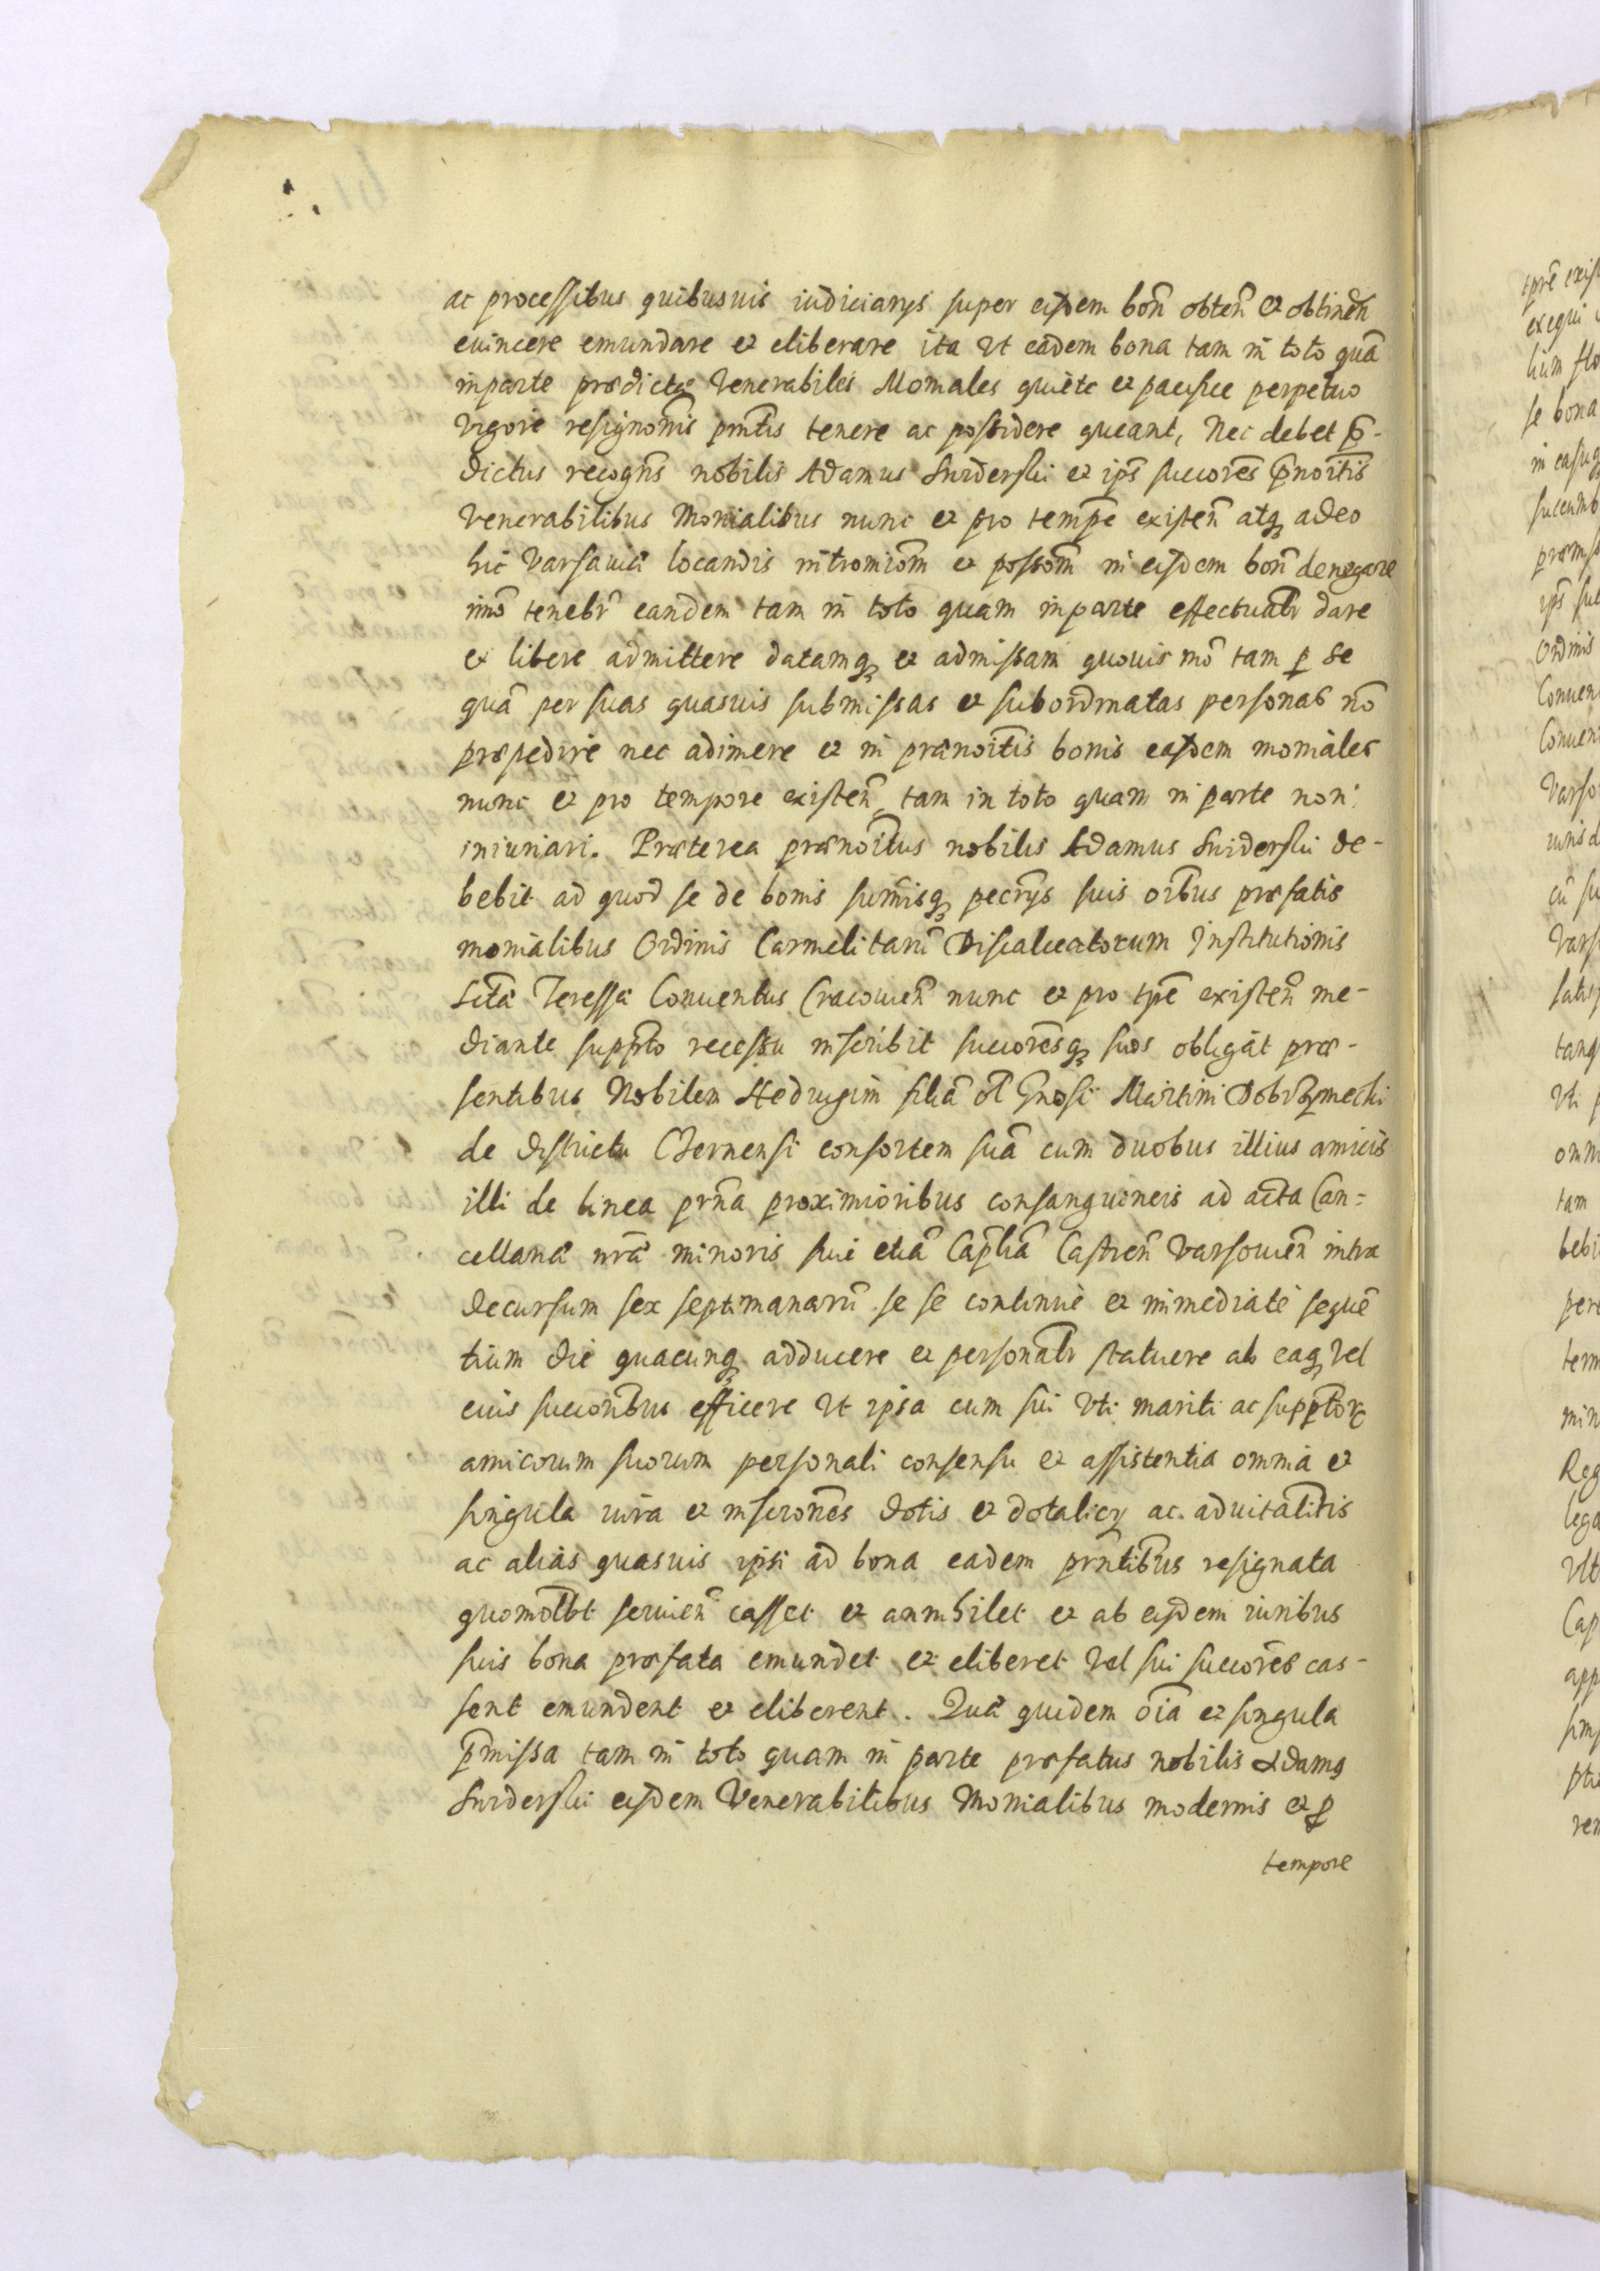 ac processibus quibusuis iudiciarijs super eisdem bon̄ obten̄ et obtinen̄
euincere emundare et eliberare ita Vt eadem bona tam in toto quā
in parte prædictæ Venerabiles Moniales quiète et pacifice perpetuo
Vigore resignōnis pn̄tis tenere ac possidere queant, Nec debet p̄-
dictus recogn̄s nobilis Adamus Sniderski et ips̄ succorēs p̄noītis
Venerabilibus Monialibus nunc et pro temp̄e existen̄ atq, adeo
hic Varsauiæ locandis intromiōm et possōm in eisdem bon̄ denegare
imō tenebr̄ eandem tam in toto quam in parte effectualr̄ dare
et libere admittere datamq, et admissam quouis mō tam p̱ se
quā per suas quasuis submissas et subordinatas personas nō
præpedire nec adimere et in prænoītis bonis easdem moniales
nunc et pro tempore existen̄ tam in toto quam in parte non
iniuriari. Præterea prænoītus nobilis Adamus Sniderski de-
bebit ad quod se de bonis summisq, pecrijs suis oībus præfatis
monialibus Ordinis Carmelitarū Discalceatorum Institutionis
Sctæ Teressæ Conuentus Cracouien̄ nunc et pro tp̄e existen̄ me-
diante suppto recessu inscribit succoresq, suos obligat præ-
sentibus Nobilem Heduigim filiā ol̄ Gn̄osi Martini
de districtu Chernensi consortem suā cum duobus illius amicis
illi de linea prn̄a proximioribus consanguineis ad acta Can-
cellariæ nr̄æ minoris siue etiā Cap̄liā Castren̄ Varsouien̄ intra
decursum sex septimanarū se se continuè et immediatè sequē
tium die quacunq, adducere et personalr̄ statuere ab eaq, Vel
eius succoribus efficere Vt ipsa cum sui Vti mariti ac supptor̄
amicorum suorum personali consensu et assistentia omnia et
singula iura et inscrōnes dotis et dotalicij ac aduitalitīs
ac alias quasuis ipsi ad bona eadem prn̄tibus resignata
quomolbt seruien̄ casset et annihilet et ab eisdem iuribus
suis bona præfata emundet et eliberet Vel sui succorēs cas-
sent emundent et eliberent. Quæ quidem oīa et singula
p̄missa tam in toto quam in parte præfatus nobilis Adamus
Sniderski eisdem Venerabilibus Monialibus modernis et p̱
tempore